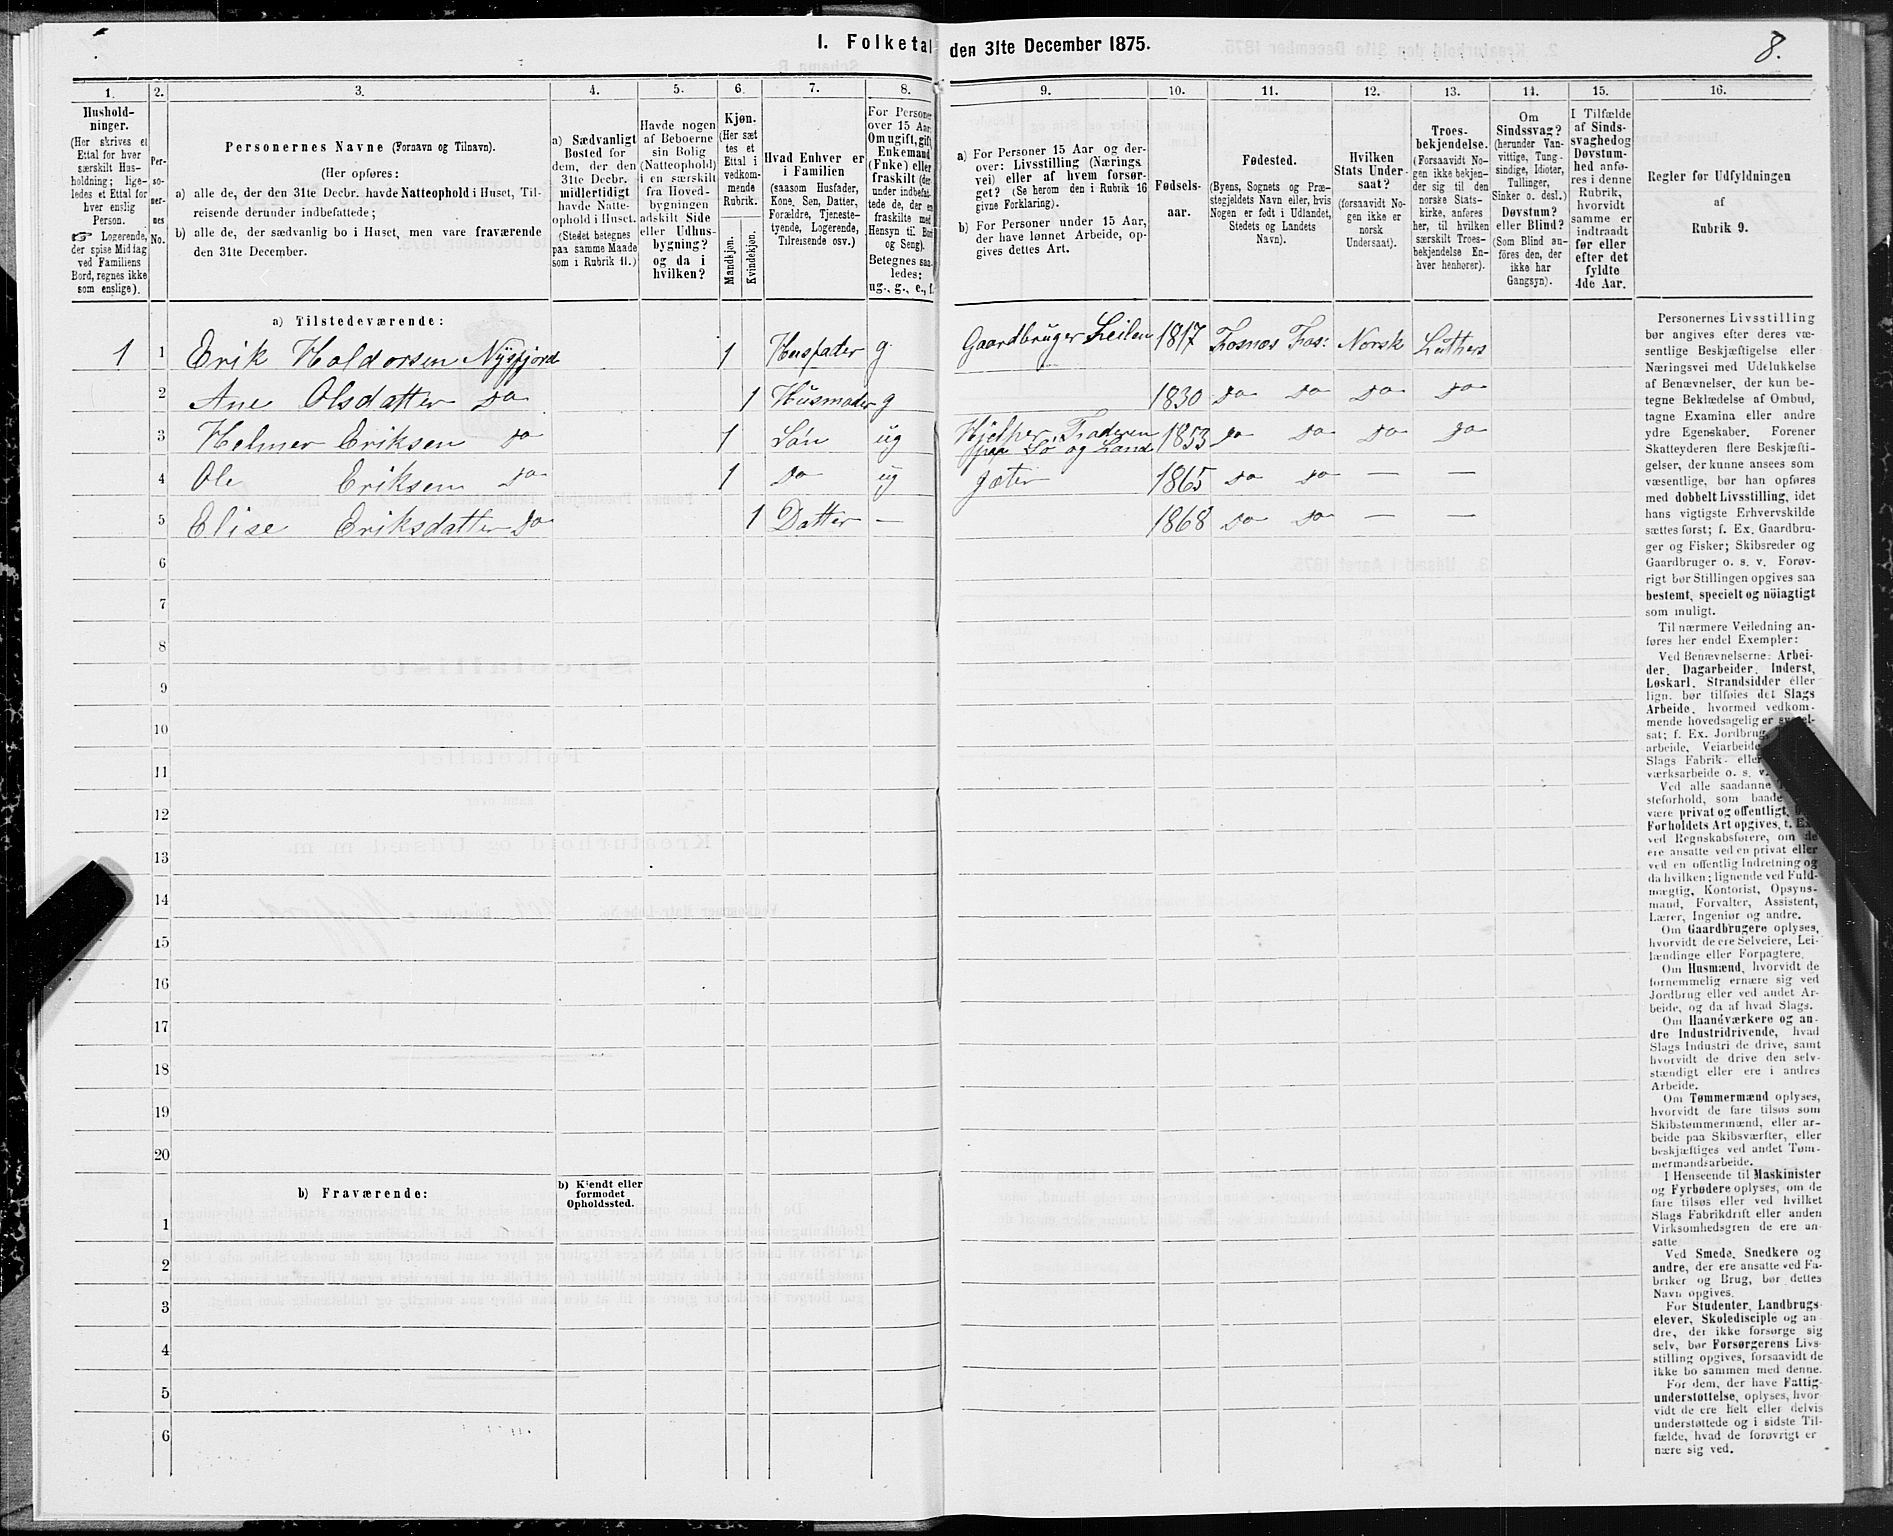 I. Folketal den 31te December 1875.
8.
1.
2.
3.
4.
5.
6.
7.
8.
9.
10.
11.
12.
13.
14.
15.
16.
Hushold-
ninger.
(Her skrives et
Ettal for hver
særskilt Hus-
holdning; lige-
ledes et Ettal for
hver enslig
Person.
☞ Logerende,
der spise Middag
ved Familiens
Bord, regnes ikke
som enslige).
Per-
so-
ner-
nes
No.
Personernes Navne (Fornavn og Tilnavn).
(Her opføres:
a) alle de, der den 31te Decbr. havde Natteophold i Huset, Til-
reisende derunder indbefattede;
b) alle de, der sædvanlig bo i Huset, men vare fraværende
den 31te December.
a) Sædvanligt
Bosted for
dem, der den
31te Decbr.
midlertidigt
havde Natte-
ophold i Huset.
(Stedet betegnes
paa samme Maade
som i Rubrik 11.)
Havde nogen
af Beboerne
sin Bolig
(Natteophold)
i en særskilt
fra Hoved-
bygningen
adskilt Side
eller Udhus-
bygning?
og da i
hvilken?
Kjøn.
(Her sæt-
tes et
Ettal i
vedkom-
mende
Rubrik.
Mandkjøn.
Kvindekjøn.
Hvad Enhver er
i Familien
(saasom Husfader,
Kone, Søn, Datter,
Forældre, Tjeneste-
tyende, Logerende,
Tilreisende osv.)
For Personer
over 15 Aar:
Om ugift, gift,
Enkemand
(Enke) eller
fraskilt (der-
under indbefat-
tede de, der ere
fraskilte med
Hensyn til Bord
og Seng).
Betegnes saa-
ledes:
ug., g., e., f.
a) For Personer 15 Aar og der-
over: Livsstilling (Nærings-
vei) eller af hvem forsør-
get? (Se herom den i Rubrik 16
givne Forklaring).
b) For Personer under 15 Aar,
der have lønnet Arbeide, op-
gives dettes Art.
Fødsels-
aar.
Fødested.
(Byens, Sognets og Præ-
stegjeldets Navn eller, hvis
Nogen er født i Udlandet,
Stedets og Landets
Navn).
Hvilken
Stats Under-
saat?
(forsaavidt No-
gen ikke er
norsk
Undersaat).
Troes-
bekjendelse.
(Forsaavidt No-
gen ikke bekjen-
der sig til den
norske Stats-
kirke, anføres
her, til hvilken
særskilt Troes-
bekjendelse En-
hver henhører).
Om
Sindssvag?
(herunder Van-
vittige, Tung-
sindige, Idioter,
Tullinger,
Sinker o. desl.)
Døvstum?
eller Blind?
(Som Blind an-
føres den, der
ikke har
Gangsyn).
I Tilfælde
af Sinds-
svaghed og
Døvstum-
hed anfø-
res i denne
Rubrik,
hvorvidt
samme er
indtraadt
før eller
efter det
fyldte
4de Aar.
Regler for Udfyldningen
af
Rubrik 9.
a) Tilstedeværende:
1 1 Erik Haldorsen Nysfjord 1 Husfater g. Gaardbruger Leilen 1817 Fosnæs Fos: Norsk Luthers
2 Ane Olsdatter Do 1 Husmoder g 1830 Do Do Do Do
3 Helmer Eriksen Do 1 Søn ug Hjelper Faderen paa Sø og Land 1853 Do Do Do Do
4 Ole Eriksen Do 1 Do ug Gæter 1865 Do Do — —
5 Elise Eriksdatter Do 1 Datter — 1868 Do Do — —
6
7
8
9
10
11
12
13
14
15
16
17
18
19
20
b) Fraværende:
b) Kjendt eller
formodet
Opholdssted.
1
2
3
4
5
6
Personernes Livsstilling
bør angives efter deres væ-
sentlige Beskjæftigelse eller
Næringsvei med Udelukkelse
af Benævnelser, der kun be-
tegne Beklædelse af Ombud,
tagne Examina eller andre
ydre Egenskaber. Forener
Skatteyderen flere Beskjæfti-
gelser, der kunne ansees som
væsentlige, bør han opføres
med dobbelt Livsstilling, idet
hans vigtigste Erhvervskilde
sættes først; f. Ex. Gaardbru-
ger og Fisker; Skibsreder og
Gaardbruger o. s. v. Forøv-
rigt bør Stillingen opgives saa
bestemt, specielt og nöiagtigt
som muligt.
Til nærmere Veiledning an-
føres her endel Exempler:
Ved Benævnelserne: Arbei-
der, Dagarbeider, Inderst,
Løskarl, Strandsidder eller
lign. bør tilføies det Slags
Arbeide, hvormed vedkom-
mende hovedsagelig er syssel-
sat; f. Ex. Jordbrug,
arbeide, Veiarbeide,
Slags Fabrik- eller
værksarbeide o. s. v.
Ved alle saadanne
steforhold, som baade
være privat og offentligt,
Forholdets Art opgives, f. Ex.
ved Regnskabsførere, om de
ere ansatte ved en privat eller
ved en offentlig Indretning og
da hvilken; lignende ved Fuld-
mægtig, Kontorist, Opsyns-
mand, Forvalter, Assistent,
Lærer, Ingeniør og andre.
Om Gaardbrugere oplyses,
hvorvidt de ere Selveiere, Lei-
lændinge eller Forpagtere.
Om Husmænd, hvorvidt de
fornemmelig ernære sig ved
Jordbrug eller ved andet Ar-
beide, og da af hvad Slags.
Om Haandværkere og an-
dre Industridrivende, hvad
Slags Industri de drive, samt
hvorvidt de drive den selv-
stændigt eller ere i andres
Arbeide.
Om Tømmermænd oplyses,
hvorvidt de fare tilsøs som
Skibstømmermænd, eller ar-
beide paa Skibsværfter, eller
beskjæftiges ved andet Tøm-
mermandsarbeide.
I Henseende til Maskinister
og Fyrbødere oplyses, om de
fare tilsøs eller ved hvilket
Slags Fabrikdrift eller anden
Virksomhedsgren de ere an-
satte.
Ved Smede, Snedkere og
andre, der ere ansatte ved Fa-
briker og Brug, bør dettes
Navn opgives.
For Studenter, Landbrugs-
elever, Skoledisciple og an-
dre, der ikke forsørge sig
selv, bør Forsørgerens Livs-
stilling opgives, forsaavidt de
ikke bo sammen med denne.
For dem, der have Fattig-
understøttelse, oplyses, hvor-
vidt de ere helt eller delvis
understøttede og i sidste Til-
fælde, hvad de forøvrigt er-
nære sig ved.